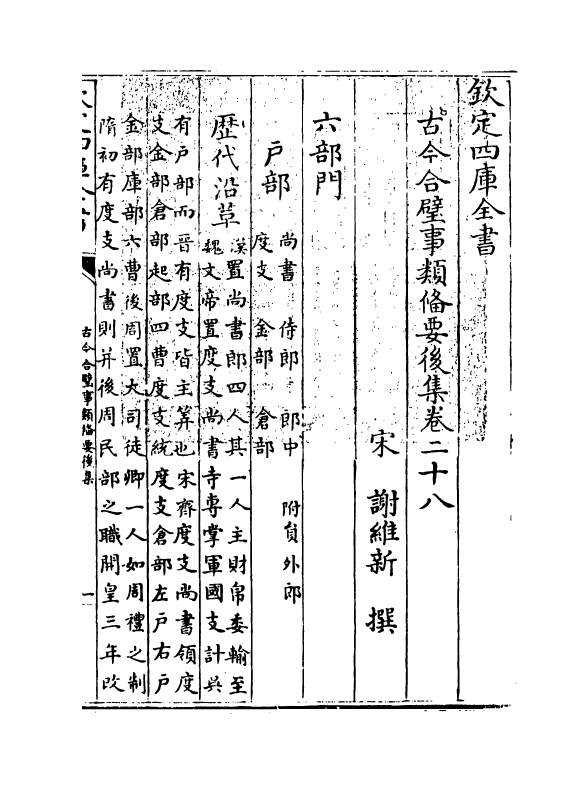 欽定四庫全書
古今合璧事類備要後集卷二十八
宋 謝維新 撰
六部門
戶部 尚書 侍郎 郎中 附員外郎
度支 金部 倉部
歷代沿革 漢置尚書郎四人其一人主財帛委輸至
魏文帝置度支尚書寺專掌軍國支計吳
有戶部而晉有度支皆主筭也宋齊度支尚書領度
支金部倉部起部四曹度支統度支倉部左戶右戶
金部庫部六曹後周置大司徒卿一人如周禮之制
隋初有度支尚書則并後周民部之職開皇三年改
古今合璧事類備要後集
一